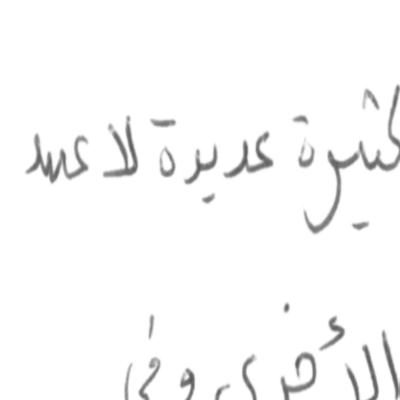 كثيرة عديدة لا عهد
الأخرى وفي